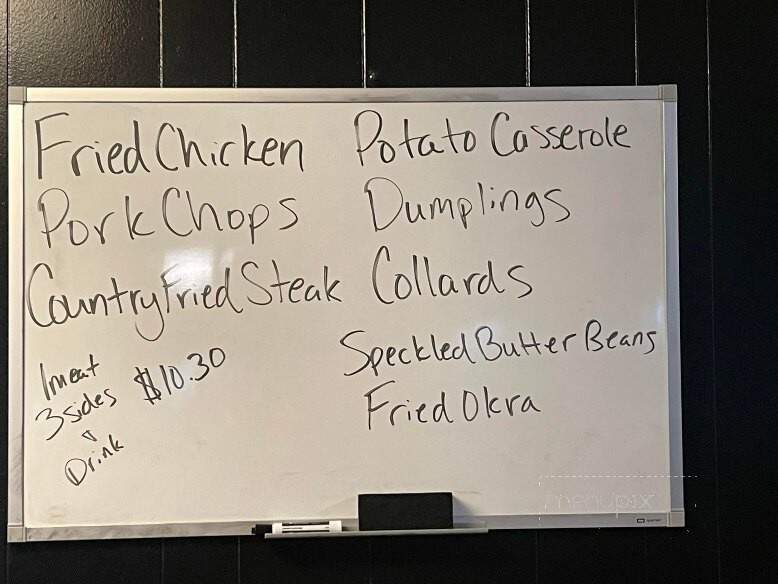 Fried Chicken
Pork Chops
Country Fried Steak
1 meat
3 sides $10.30
Drink
Potato Casserole
Dumplings
Collards
Speckled Butter Beans
Fried Okra
menupix